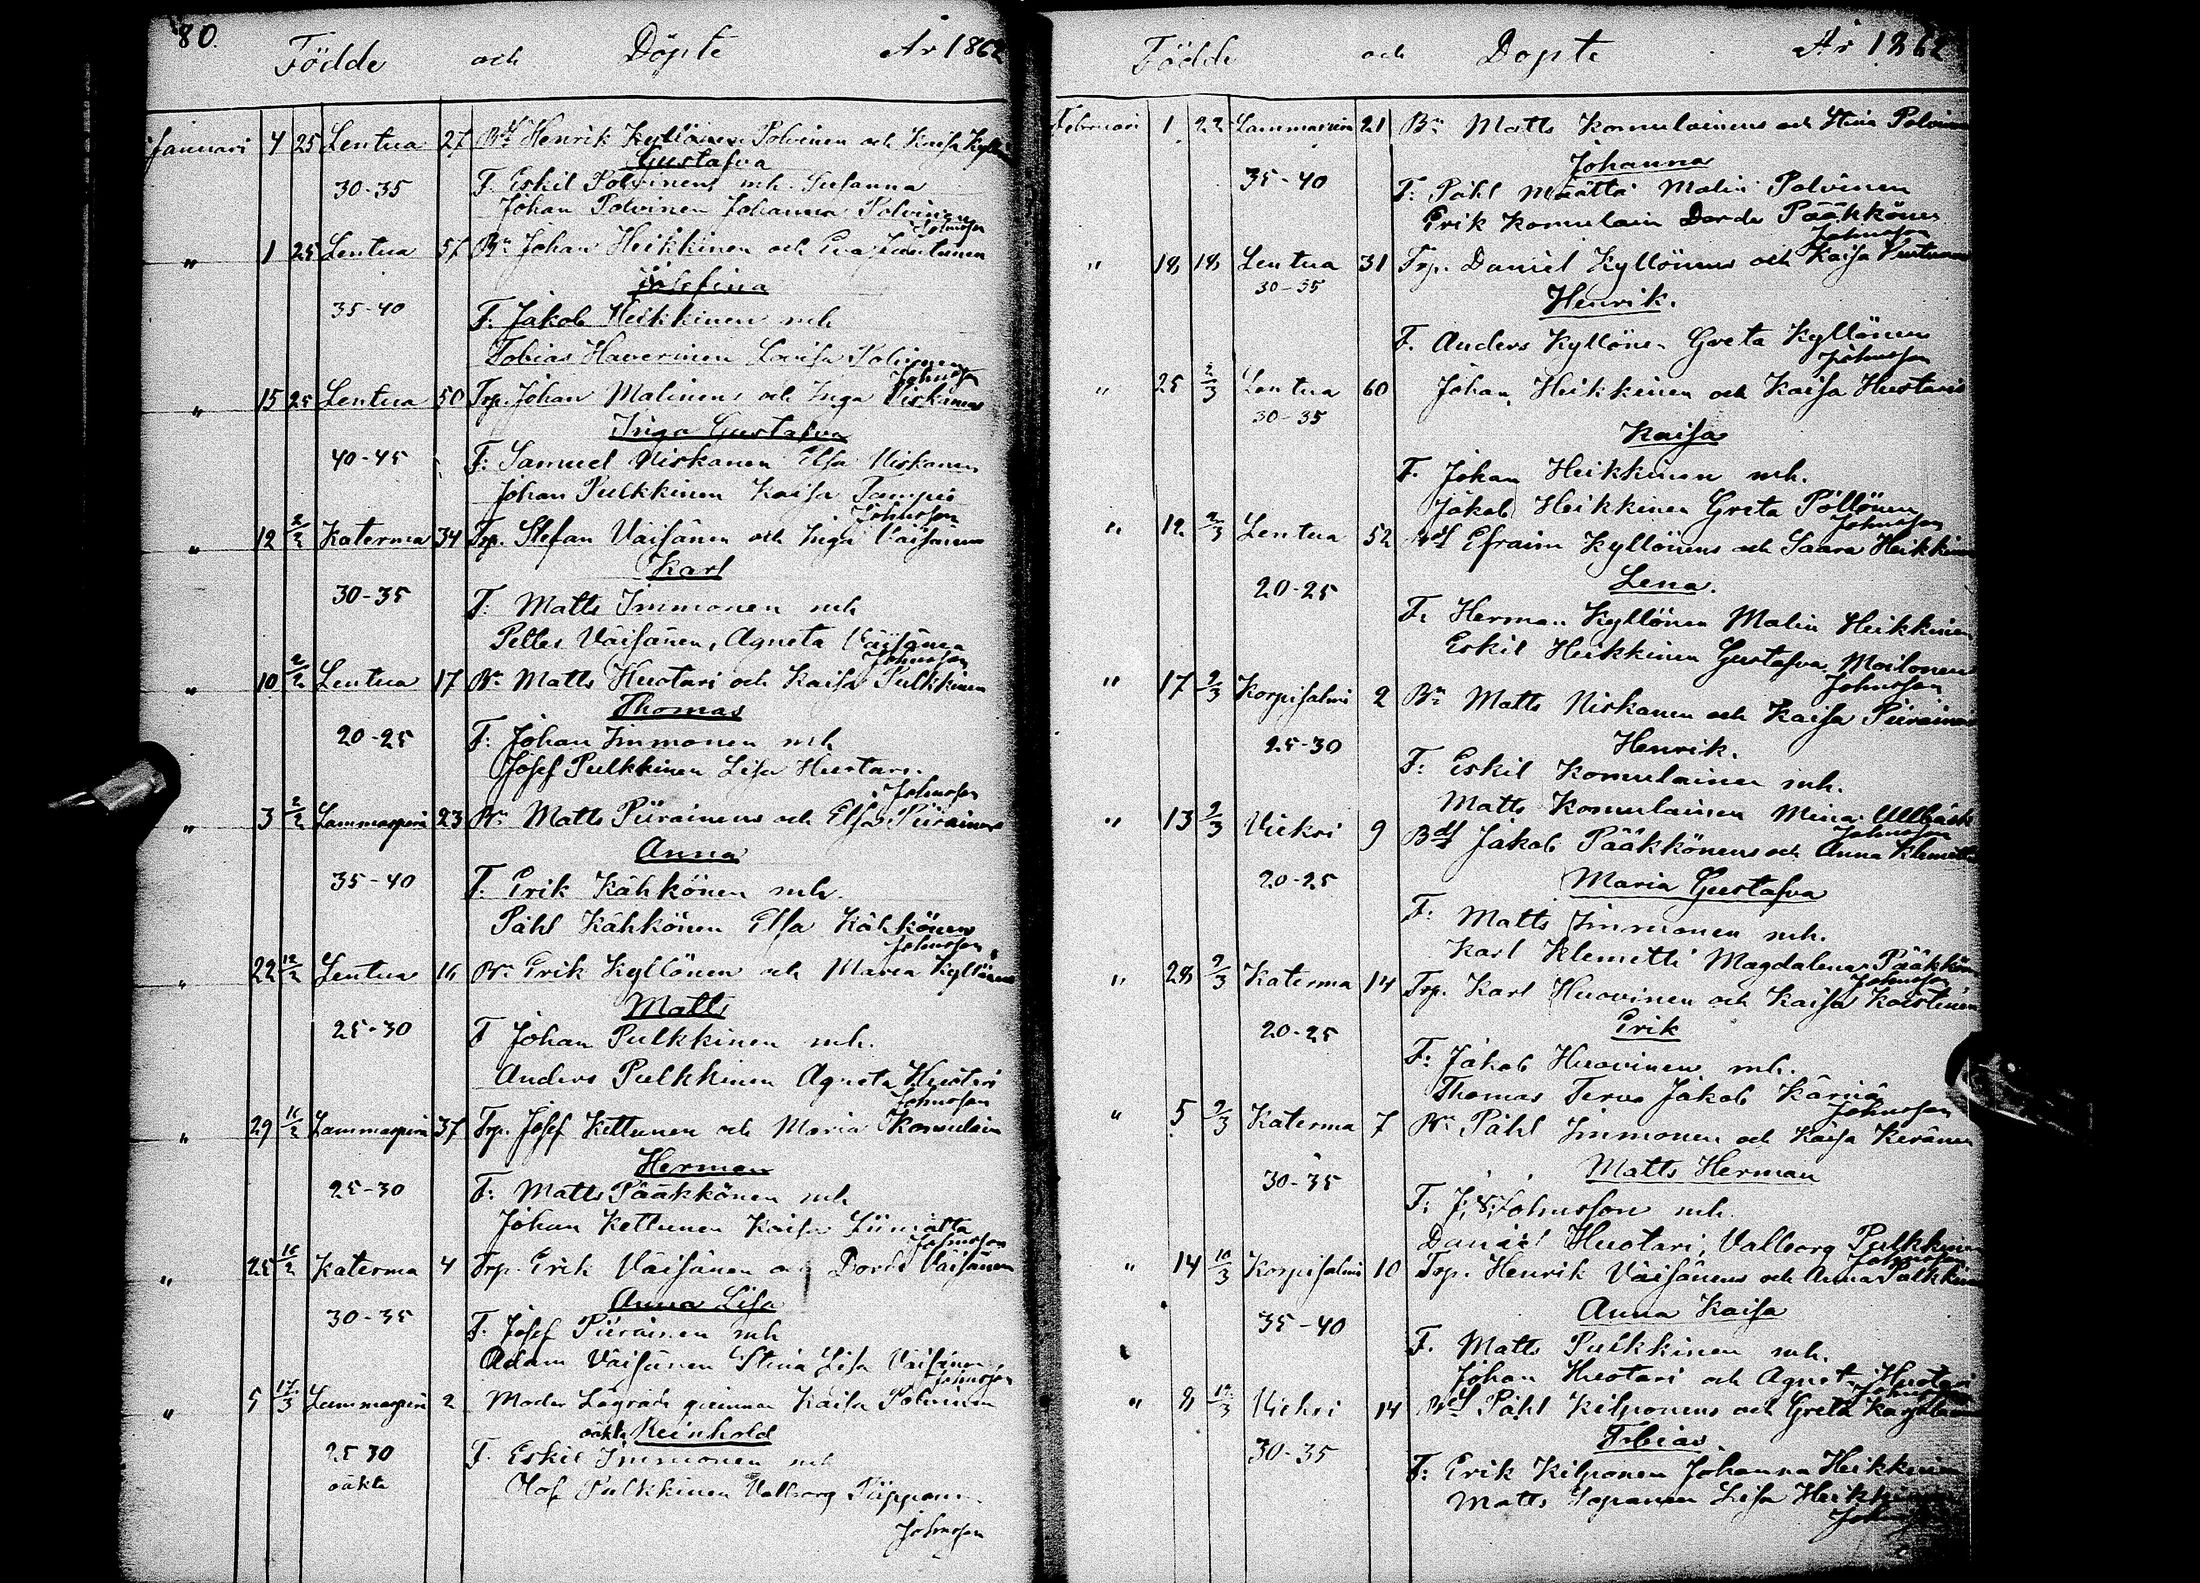 80.
Födde och Döpte År 1862
Januari 4 25 Lentua 27 Henrik Kyllönen Polvinen och Kaisa
Gustafva
30-35 F. Eskil Polvinens mh. Susanna
Johan Polvinen Johanna Polvinen
Johnsson
" 1 25 Lentua 57 Bn Johan Heikkinen och Eva
Josefina
35-40 F: Jakob Heikkinen mh
Tobias Haverinen Lovisa Polvinen
Johnsson
" 15 25 Lentua 50 Trp. Johan Malinens och Inga Niskanen
Inga Gustafva
40-45 F: Samuel Niskanen Elsa Niskanen
Johan Pulkkinen Kaisa Tampio
Johnsson
" 12 2/2 Katerma 34 Trp. Stefan Väisänen och Inga Väisänen
Karl
30-35 F: Matts Immonen mh
Pelles Väisänen, Agneta Väisänen
Johnsson
" 10 2/2 Lentua 17 Bn Matts Huotari och Kaisa Pulkkinen
Thomas
20-25 F: Johan Immonen mh
Josef Pulkkinen Lisa Huotari.
Johnsson
" 3 2/2 Lammasperä 23 Bn Matts Piirainens och Elsa Piirainen
Anna
35-40 F. Erik Kähkönen mh.
Påhl Kähkönen Elsa Kähkönen
Johnsson
" 22 12/2 Lentua 16 Bn Erik Kyllönen och Maria Kyllönen
Matts
25-30 F Johan Pulkkinen mh.
Anders Pulkkinen Agneta Huotari
Johnsson
" 29 16/2 Lammasperä 37 Trp. Josef Kettunen och Maria Komulain
Herman
25-30 F: Matts Pääkkönen mh
Johan Kettunen Kaisa Liimatta
Johnsson
" 25 16/2 Katerma 4 Trp. Erik Väisänen och Dorde Väisänen
Anna Lisa
30-35 F. Josef Piirainen mh
Adam Väisänen Stina Lisa Väisänen
Johnsson
" 5 17/3 Lammasperä 2 Moder Lägrade qvinnan Kaisa Polvinen
oäkta Reinhold
25 30 F. Eskil Immonen mh
oäkta Olof Pulkkinen Valborg
Johnsson
Födde och Döpte År 1862
Februari 1 22 Lammasperä 21 Bn Matts Komulainens och Stina Polvinen
Johanna
35-40 F: Påhl Määttä Malin Polvinen
Erik Komulain Dorde Pääkkönen
Johnsson
" 18 18 Lentua 31 Trp. Daniel Kyllönens och Kaisa
30-35 Henrik.
F. Anders Kyllönen Greta Kyllönen
Johnsson
" 25 2/3 Lentua 60 Johan Heikkinen och Kaisa Huotari
30-35 Kaisa
F. Johan Heikkinen mh.
Jakob Heikkinen Greta Pöllönen
Johnsson
" 12 2/3 Lentua 52 Efraim Kyllönens och Saara Heikkinen
20-25 Lena.
F. Herman Kyllönen Malin Heikkinen
Eskil Heikkinen Gustafva Moilanen
Johnsson
" 17 2/3 Korpisalmi 2 Bn Matts Niskanen och Kaisa Piirainen
25-30 Henrik.
F: Eskil Komulainen mh.
Matts Komulainen Mina Ullbäck
Johnsson
" 13 9/3 Vieksi 9 Bds Jakob Pääkkönens och Anna Klemetti
20-25 Maria Gustafva
F: Matts Immonen mh.
Karl Klemetti Magdalena Pääkkön
Johnsson
" 28 9/3 Katerma 14 Trp. Karl Huovinen och Kaisa Koistinen
20-25 Erik
F: Jakob Huovinen mh.
Thomas Tervo Jakob Kärnä
Johnsson
" 5 9/3 Katerma 7 Bn Påhl Immonen och Kaisa Keränen
30-35 Matts Herman
F. J. Johnsson mh.
Daniel Huotari, Valborg Pulkkinen
Johnsson
" 14 10/3 Korpisalmi 10 Trp. Henrik Väisänens och Anna Pulkkinen
35-40 Anna Kaisa
F. Matts Pulkkinen mh.
Johan Huotari och Agneta Huotari
Johnsson
" 8 /3 Vieksi 14 Bds Påhl Kilponens och Greta
30-35 Tobias
F: Erik Kilponen Johanna Heikkinen
Matts Lisa Heikkinen
Johnsson